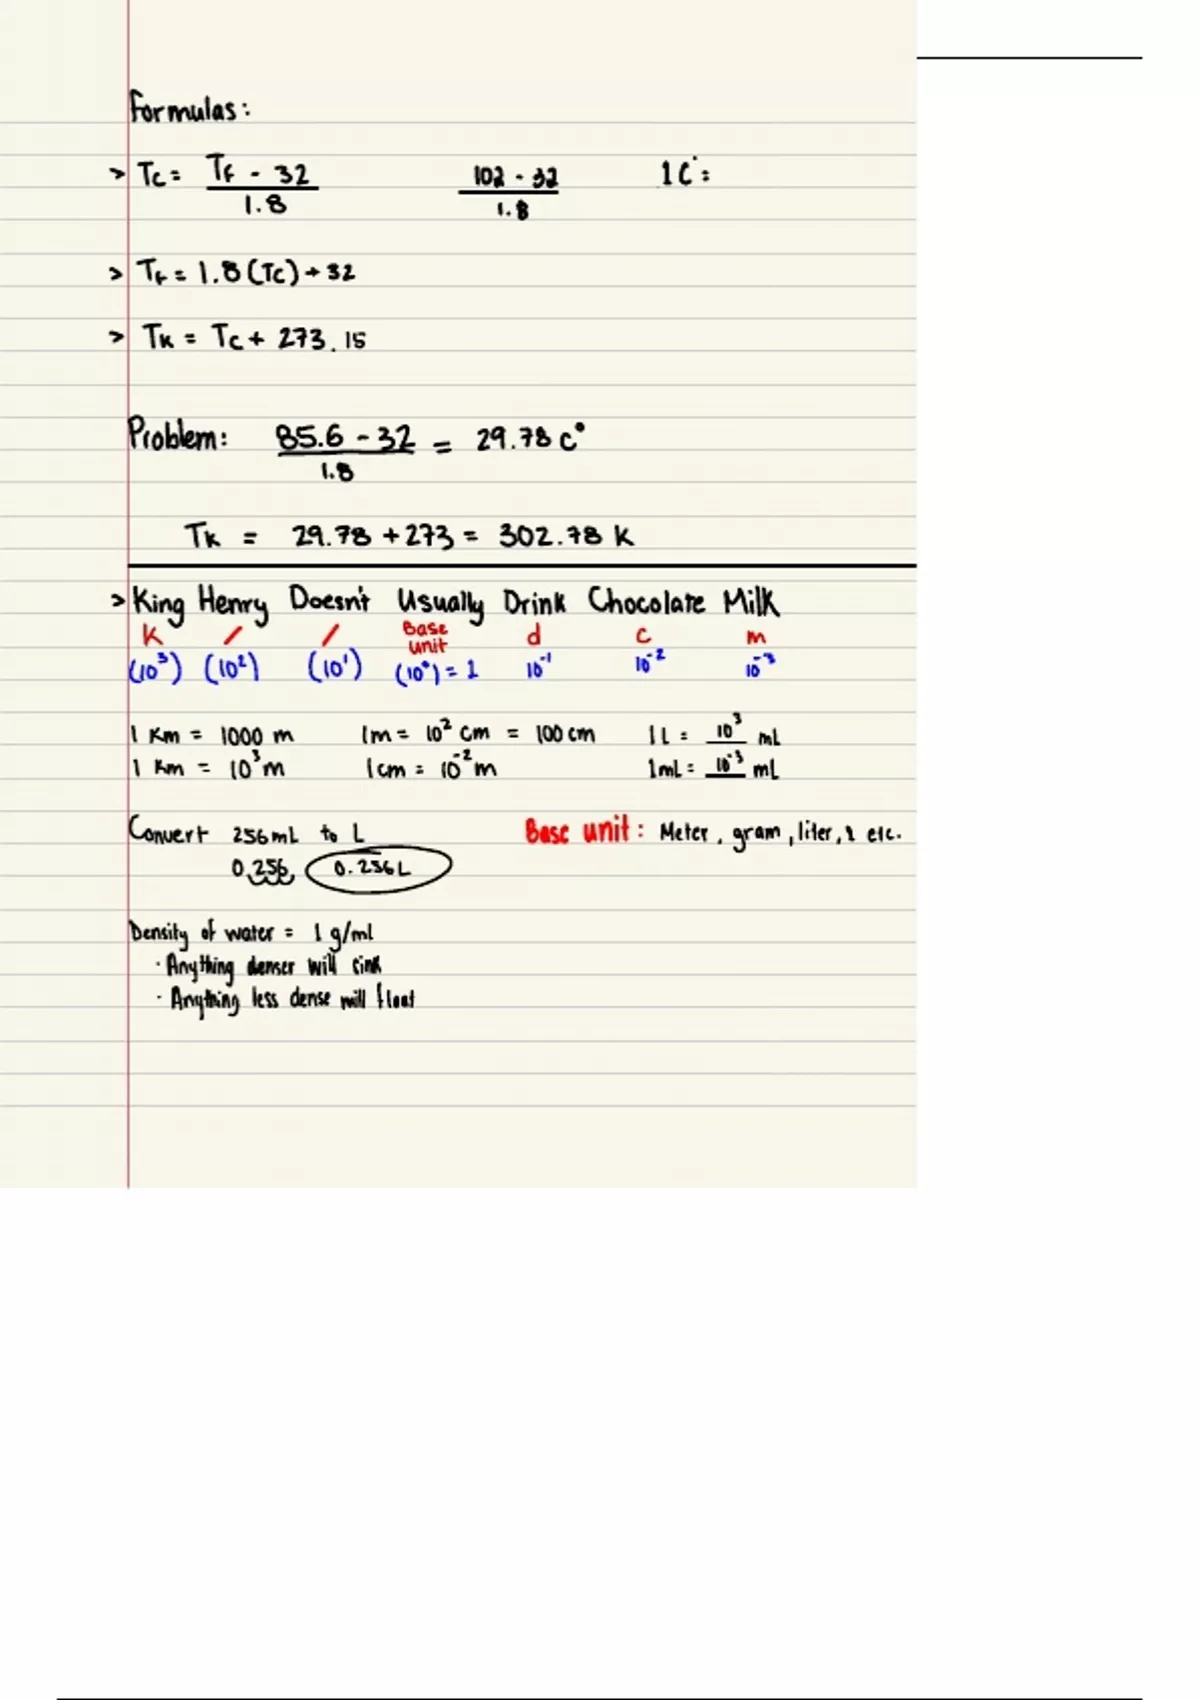 Formulas:
> Tc = TF - 32 / 1.8    102 - 32 / 1.8    1C° =
> TF = 1.8(Tc) + 32
> TK = Tc + 273.15
Problem: 85.6 - 32 / 1.8 = 29.78 C°
TK = 29.78 + 273 = 302.78 K
> King Henry Doesn't Usually Drink Chocolate Milk
K / / Base unit d c m
(10³) (10²) (10¹) (10⁰) = 1 10⁻¹ 10⁻² 10⁻³
1 Km = 1000 m    1m = 10² cm = 100 cm    1L = 10³ mL
1 Km = 10³ m    1cm = 10⁻² m    1mL = 10⁻³ mL
Convert 256mL to L    Base unit: Meter, gram, liter, & etc.
0.256 0.256L
Density of water = 1 g/ml
· Anything denser will sink
· Anything less dense will float